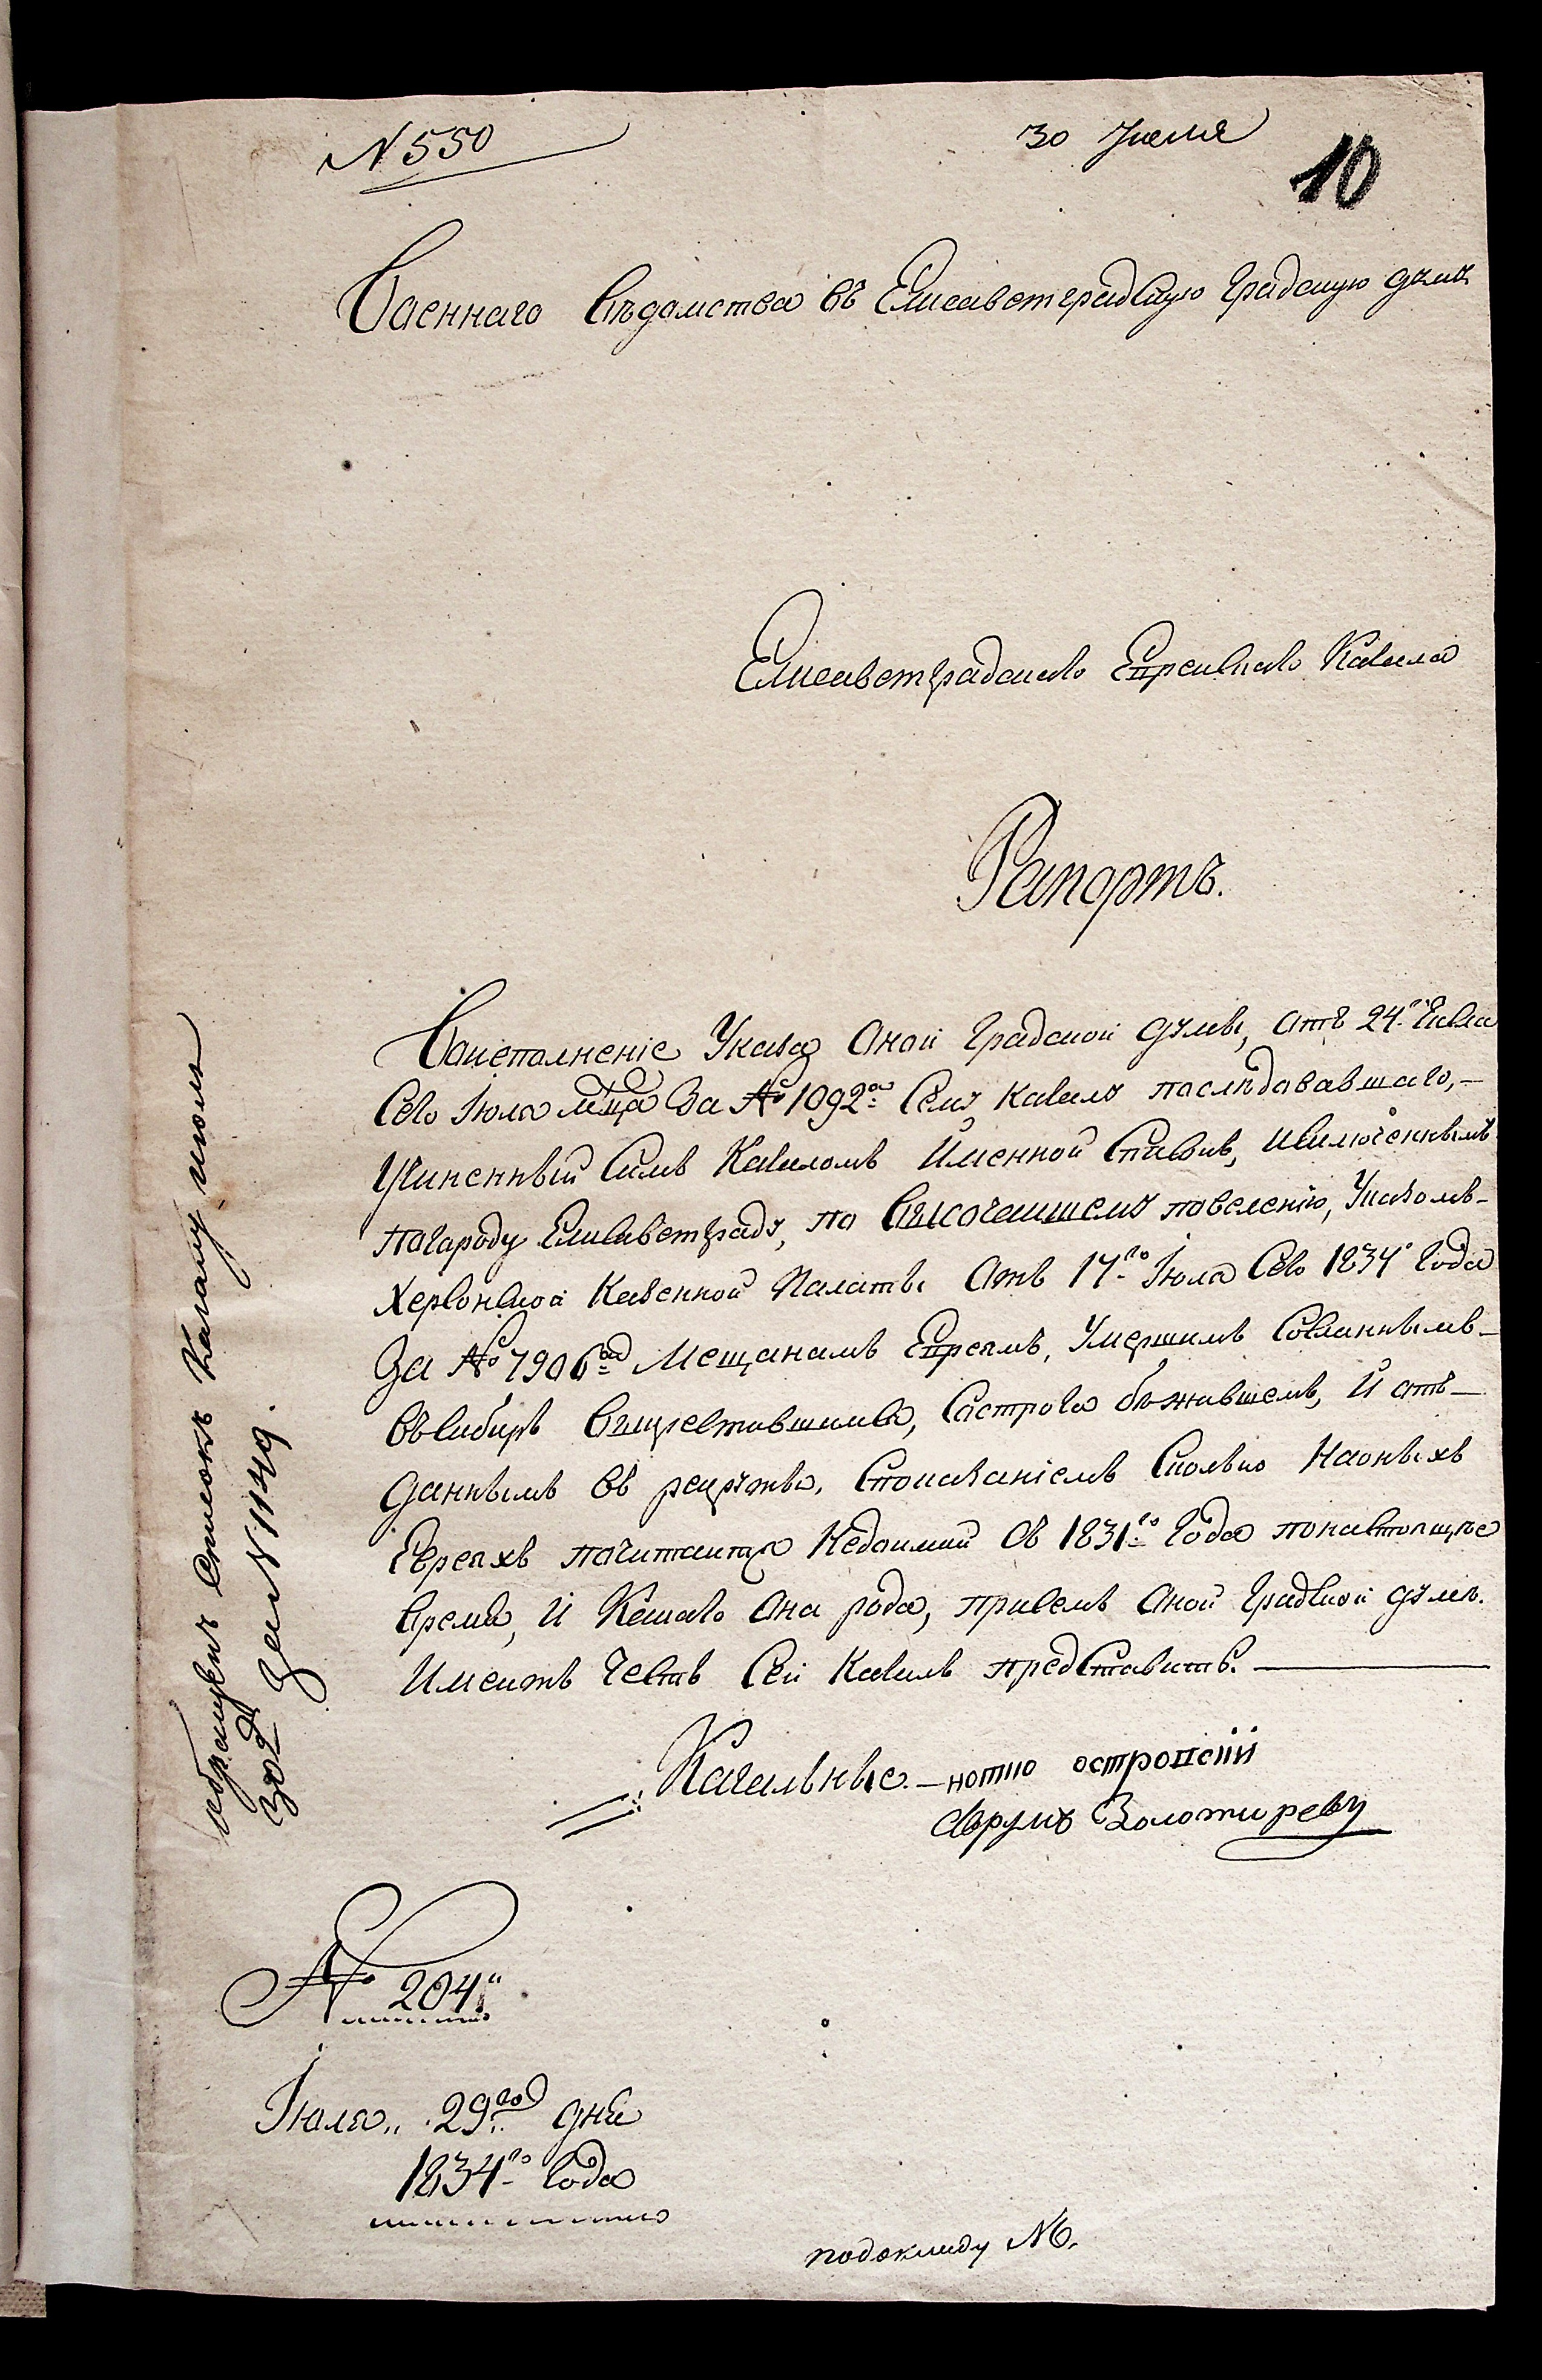 N 550
30 Июля
10
Военнаго Вѣдомства въ Елисаветградскую Градскую думу
Елисаветградскаго Еврейскаго Кагала
Рапортъ.
Воисполненіе Указа Оной Градской думы, отъ 24го числа
Сего Іюля мѣца За № 1092м Сему Кагалу последовавшаго,—
Учиненный Симъ Кагаломъ Именной Списокъ, Изключеннымъ
погороду Елисаветграду, по Высочайшему повеленію, Указомъ—
Херсонской Казенной Палаты Отъ 17го Іюля Сего 1834го Года
За № 7906м Мещанамъ Евреямъ, Умершимъ Сосланнымъ—
Въ Сибирь Вы Сострога бежавшемъ, И отъ—
даннымъ Въ рекруты, Спока­заніемъ Сколько Наоныхъ
Евреяхъ почитаится Недоимки Съ 1831го Года понастоящее
Время, И Какаго Она рода, присемъ Оной Градской думе.
Имеитъ Честь Сей Кагалъ представить.
Кагальные — нотио островскій
Аврумъ Золотаревъ
№ 204й
Іюля 29го дня
1834го Года
подокладу № 6.
списокъ Кагалу июля
30д За N 1149.